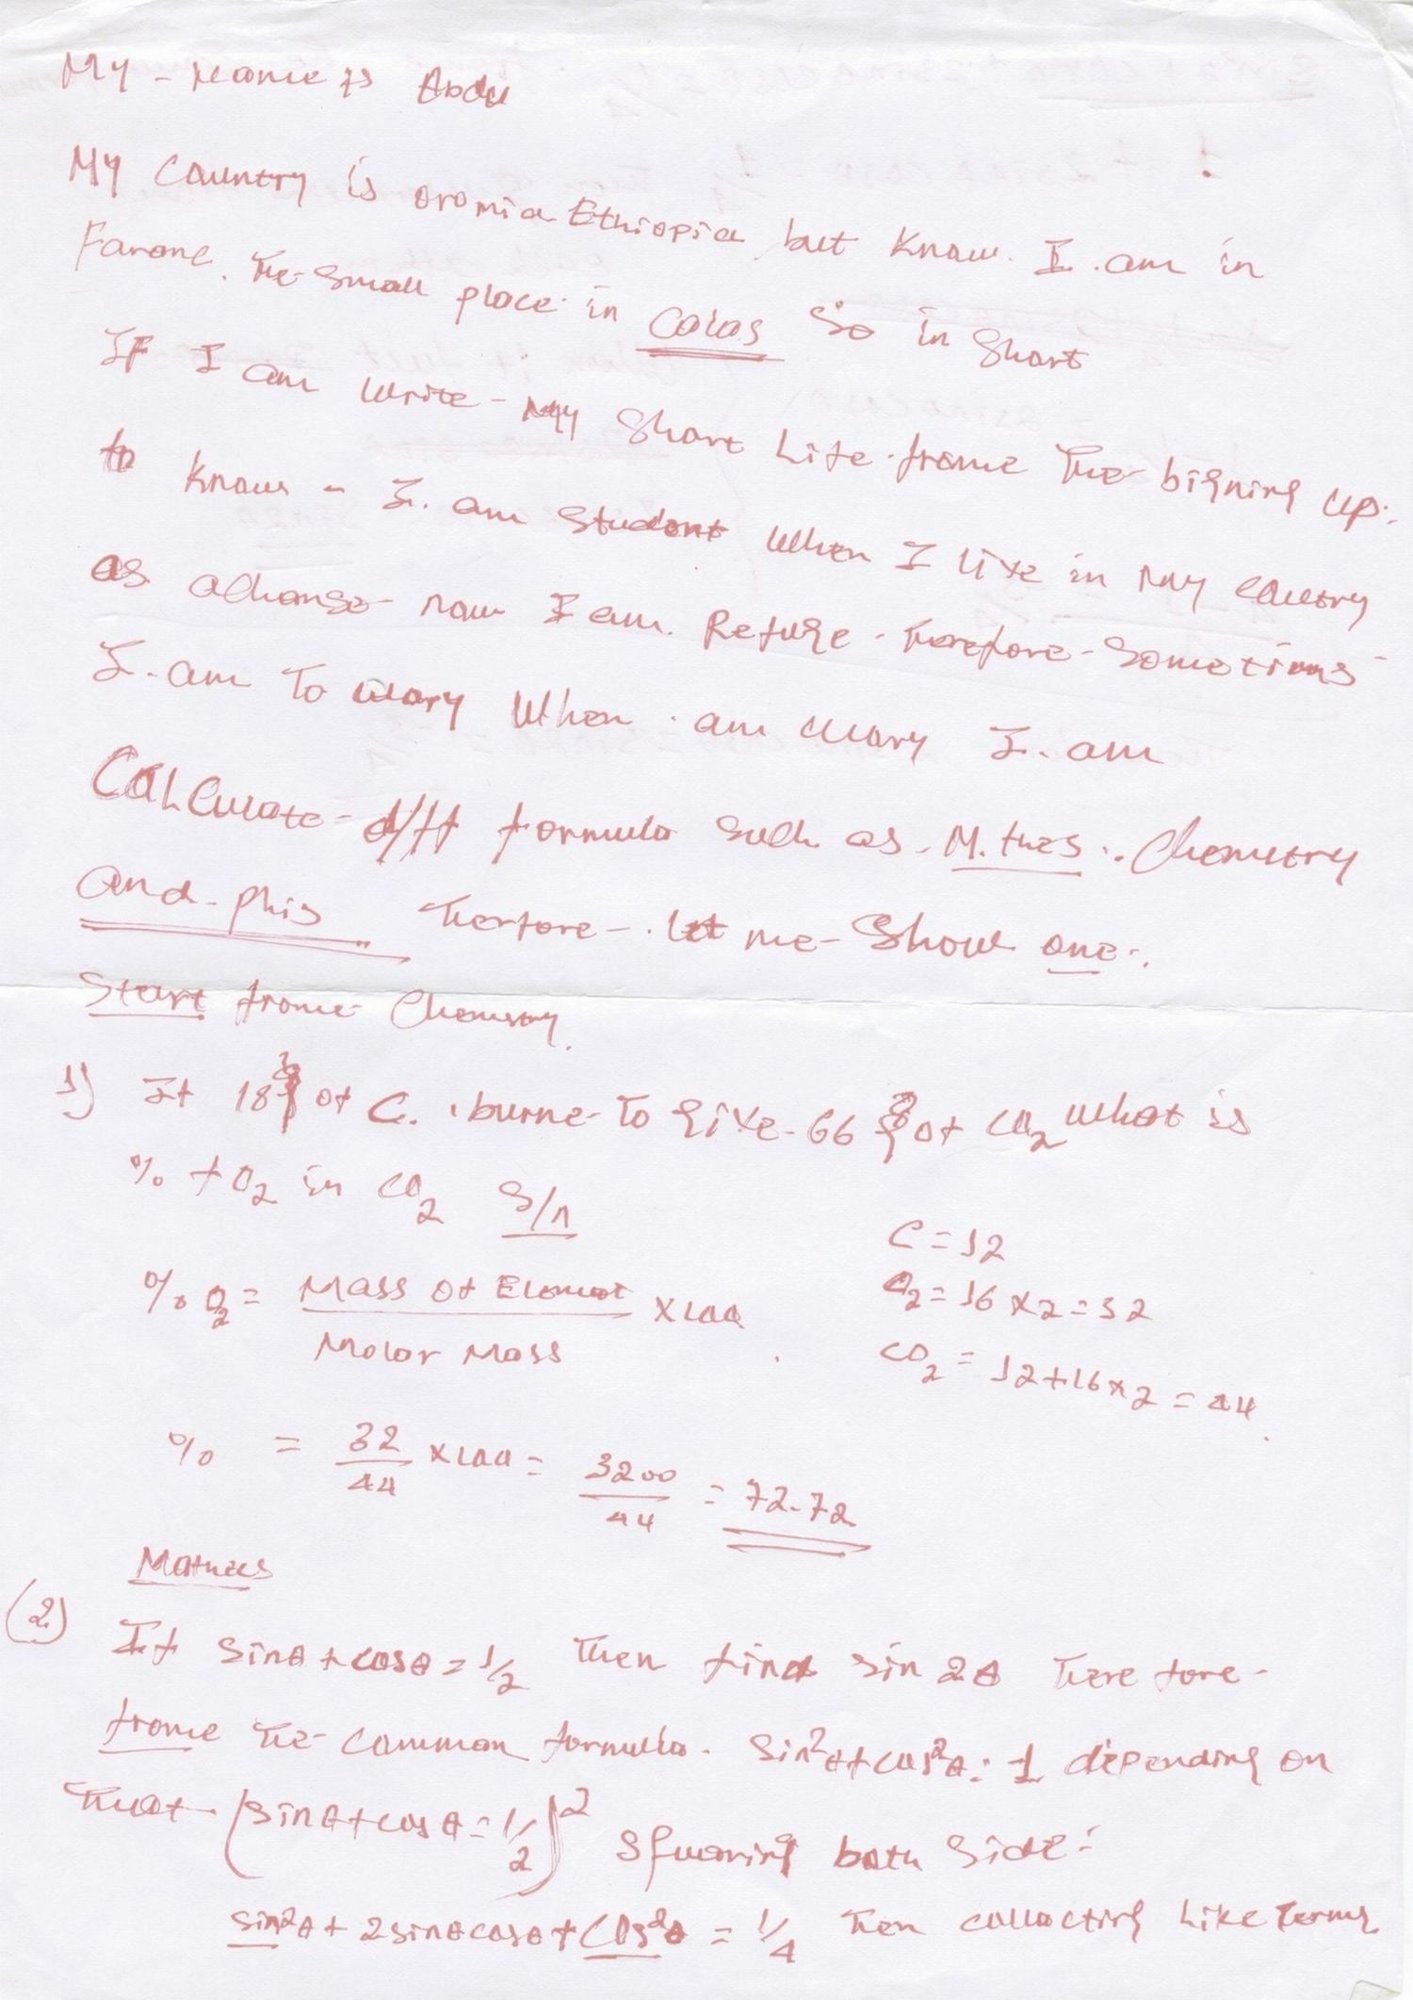 My - Name is Abdu
My Country is oromia Ethiopia but Know. I. am in
Farone. The Small place in Calas So in Short
IF I am write - My Short Life frome The bigning up.
to Know - I. am Student When I live in my Country
as achanse now I am. Refuge. Therefore - Sometims
I. am To wary When. am wary I. am
CALCulate - d/ft formula Such as. M. thes. Chemetry
and - phis Therfore - let me - Show one.
Start frome Chemistry.
1) If 18g of C. burne - To give - 66 g of CO2 What is
% + O2 in CO2 S/n
C = 12
O2 = 16 x 2 = 32
CO2 = 12+16x2 = 44
% O2 = Mass of Element x100
Molar Mass
% = 32/44 x100 = 3200/44 = 72.72
Mathes
(2) If sinθ + cosθ = 1/2 Then find sin 2θ There fore -
frome The - Common formula. Sin²θ + cos²θ = 1 depending on
That - (sinθ + cosθ = 1/2)² Squaring both Side =
sin²θ + 2sinθcosθ + Cos²θ = 1/4 Then Collecting Like Terms